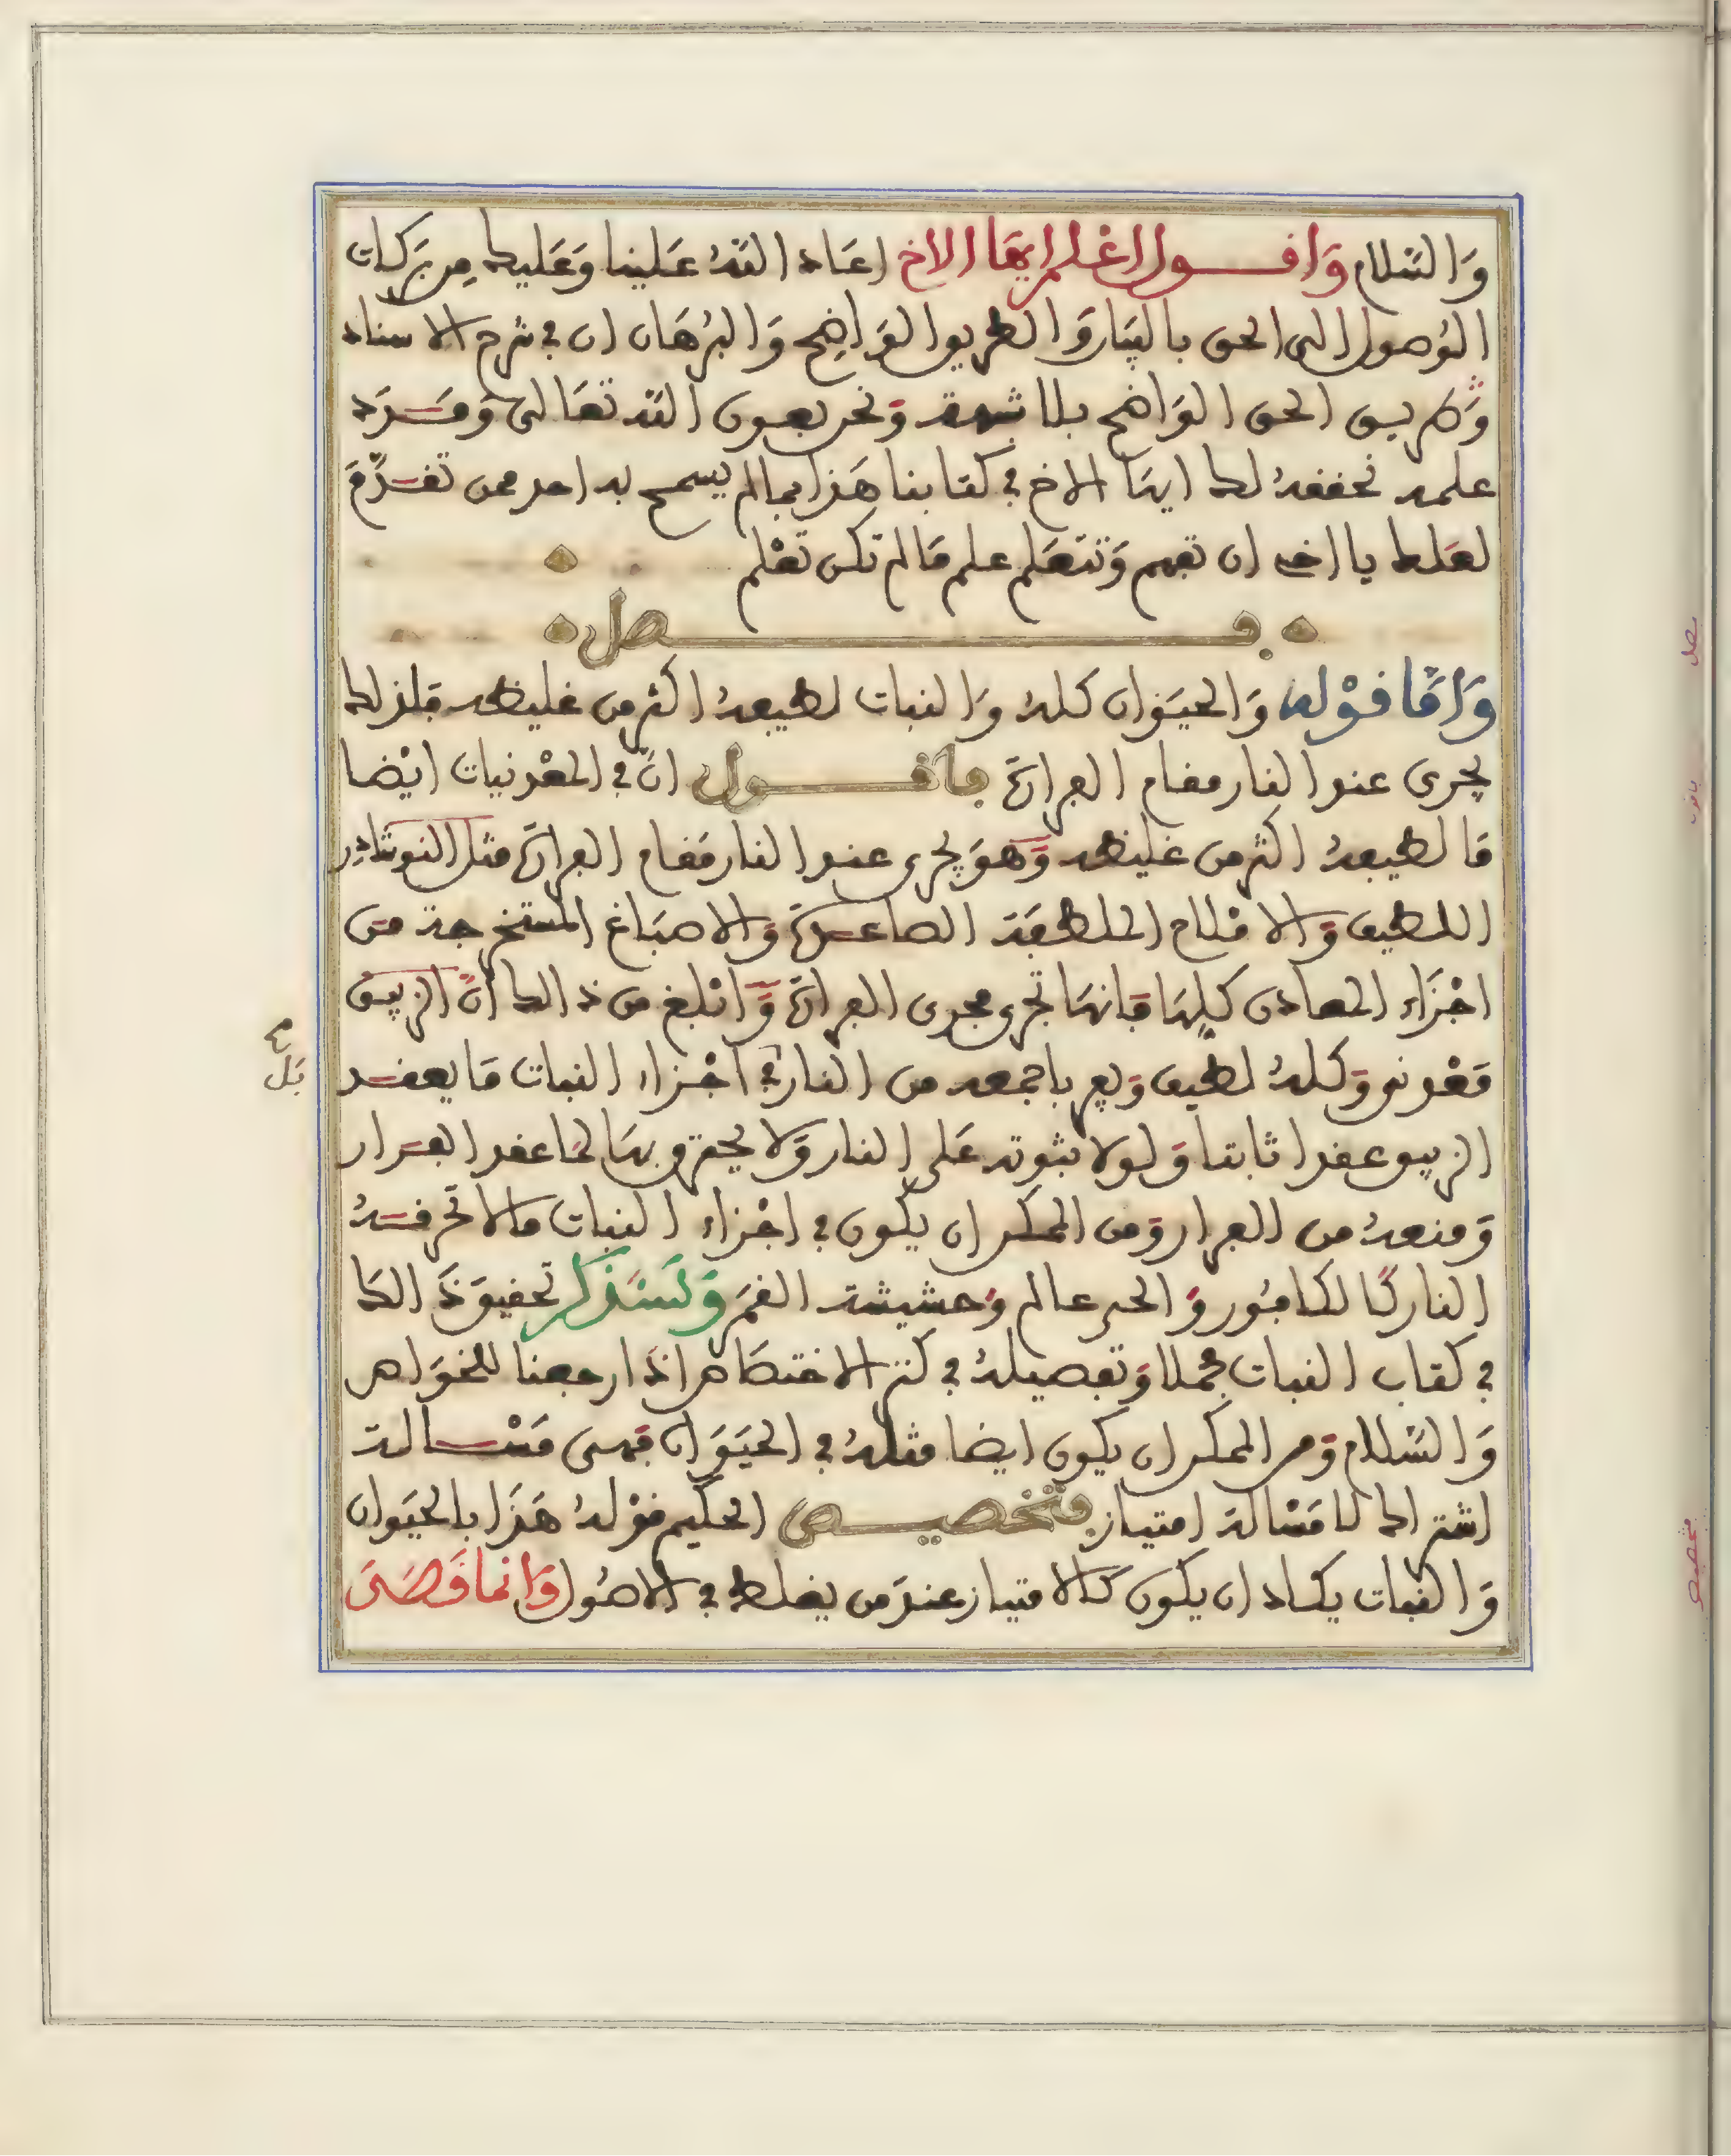 والسلام وافول اعلم ايها الاخ اعاد الله علينا وعليك من بركات
الوصول الى الحق بالبيان والطريق الواضح والبرهان ان في شرح الاسناد
وطريق الحق الواضح بلا شبهة ونحن بعون الله تعالى ومدد
علمه نحققه لك ايها الاخ في كتابنا هذا بما لم يسمح به احد ممن تقدم
لعلك يا اخي ان تفهم وتتعلم علم ما لم تكن تعلم
فصل
واما قوله والحيوان كله والنبات لطيفه اكثر من غليظه فلذلك
يجري عند النار مقام الفرارة فاقول ان في المعدنيات ايضا
ما لطيفه اكثر من غليظه وهو يجري عند النار مقام الفرارة مثل النوشادر
اللطيف والاملاح الملطفة الصاعدة والاصباغ المستخرجة من
اجزاء المعادن كلها فانها تجري مجرى الفرارة وابلغ من ذالك ان الزيبق
معدني وكله لطيف ويفر باجمعه من النار في اجزاء النبات ما يعقد
بل
الزيبق عقدا ثابتا ولولا ثبوته على النار ولا يحترق بها لما عقد الفرار
ومنعه من الفرار ومن الممكن ان يكون في اجزاء النبات ما لا تحرقه
النار كالكافور والحي عالم وحشيشة القمر ولنذكر تحقيق ذالك
في كتاب النبات مجملا وتفصيله في كنز الاختصاص اذا رجعنا للخواص
والسلام ومن الممكن ان يكون ايضا مثله في الحيوان فهي مسالة
اشتراك لا مسالة امتياز فتخصيص الحكيم قوله هذا بالحيوان
والنبات يكاد ان يكون كالامتياز عند من يغلط في الاصول وانما قصد